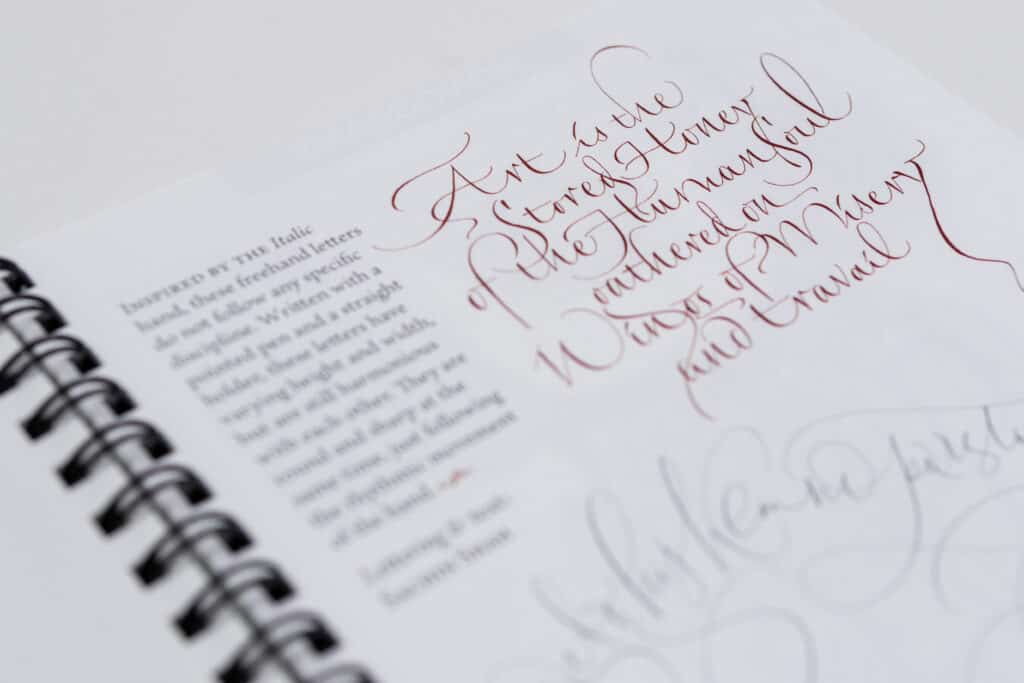 INSPIRED BY THE Italic
hand, these freehand letters
do not follow any specific
discipline. Written with a
pointed pen and a straight
holder, these letters have
varying height and width,
but are still harmonious
with each other. They are
round and sharp at the
same time, just following
the rhythmic movement
of the hand.
Lettering & text:
Art is the
Stored Honey
of the Human Soul
gathered on
Wings of Misery
and travail